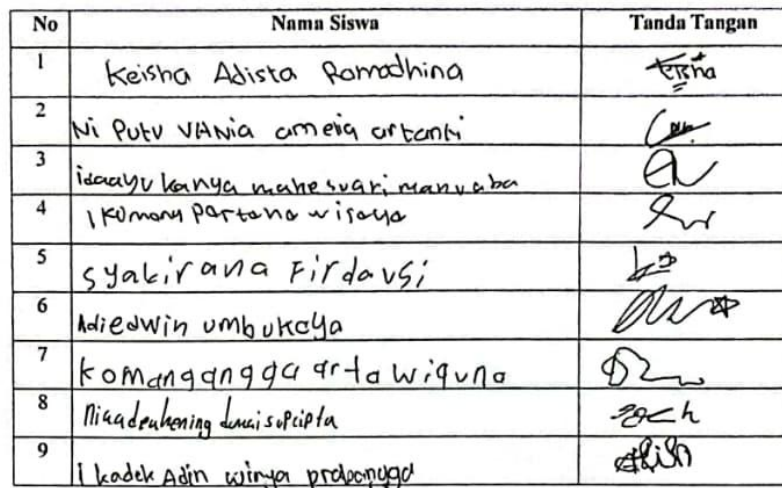 No Nama Siswa Tanda Tangan
1 Keisha Adista Ramadhina Keisha
2 Ni Putu VANia amelia artanti
3 idaayu kanya mahesuari manuaba
4 I Komang Partana wijaya
5 syakirana Firdausi
6 Adiedwin umbukaya
7 komangangga arta wiguna
8 Nikadekhening
9 I kadek Adin wirya